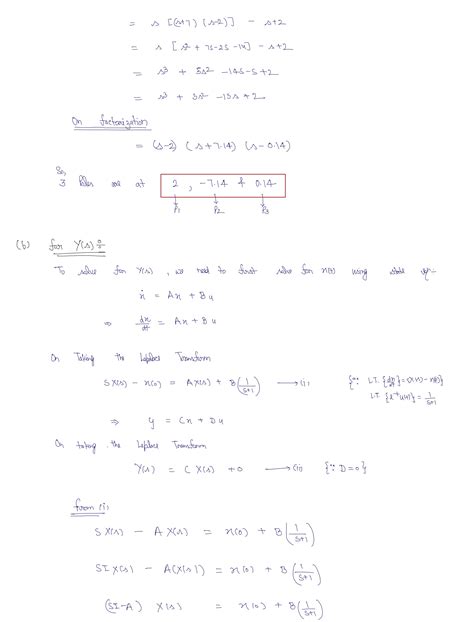 = s [(s+7) (s-2)] - s+2
= s [s² + 7s-2s-14] - s+2
= s³ + 5s² - 14s - s + 2
= s³ + 5s² - 15s + 2
On factorization
= (s-2) (s+7.14) (s-0.14)
So,
3 Poles are at 2, -7.14 & 0.14
P1 P2 P3
(b) for Y(s) :
To solve for Y(s), we need to first solve for x(t) using state eqn.
ẋ = Ax + Bu
⇒ dx/dt = Ax + Bu
On Taking the Laplace Transform
SX(s) - x(0) = AX(s) + B(1/(s+1)) ⟶ (i) {∵ L.T. {dx/dt} = sX(s) - x(0)}
L.T. {e⁻ᵗu(t)} = 1/(s+1)
⇒ y = Cx + Du
On taking the Laplace Transform
Y(s) = C X(s) + 0 ⟶ (ii) {∵ D=0}
from (i)
S X(s) - A X(s) = x(0) + B(1/(s+1))
SI X(s) - A(X(s)) = x(0) + B(1/(s+1))
(SI-A) X(s) = x(0) + B(1/(s+1))